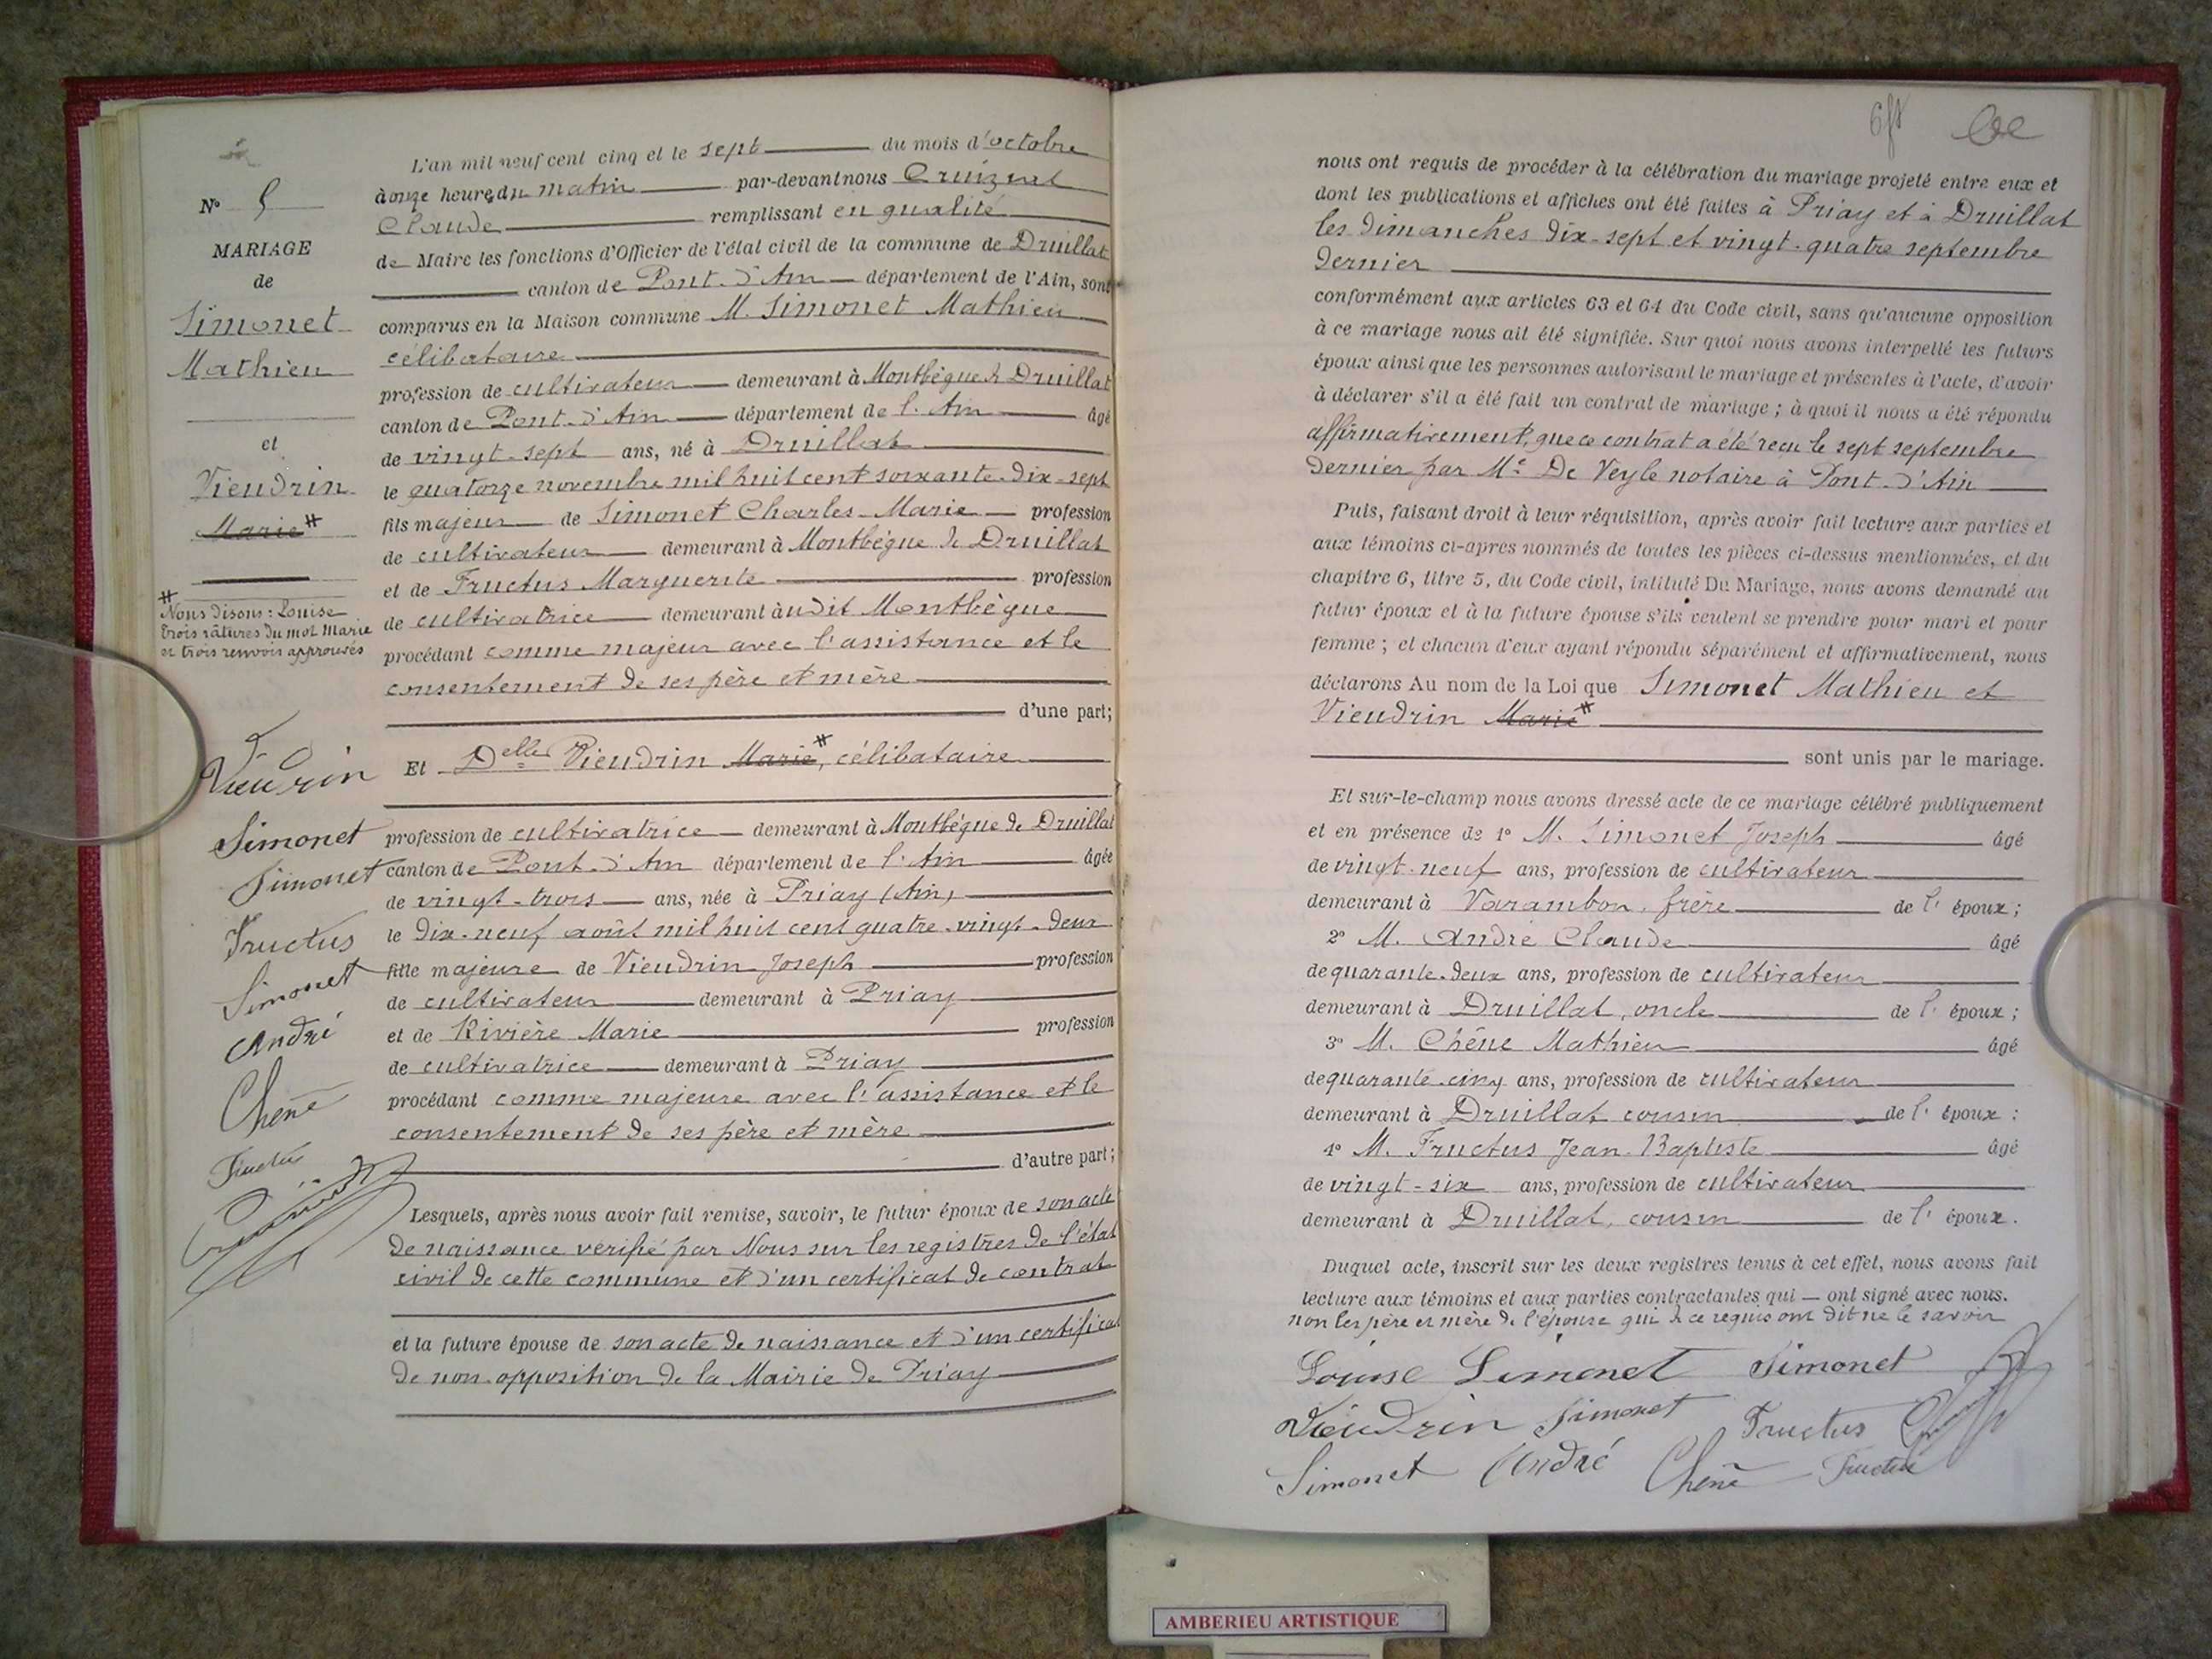 N° 5
MARIAGE
de
Simonet
Mathieu
et
Vieudrin
Marie #
# Nous disons : Louise
trois râtures du mot Marie
et trois renvois approuvés
Vieudrin
Simonet
Simonet
Fructus
Simonet
André
Chêne
Fructus
L'an mil neuf cent cinq et le sept du mois d'octobre
à onze heures du matin par-devant nous
Claude remplissant en qualité
de Maire les fonctions d'Officier de l'état civil de la commune de Druillat
canton de Pont-d'Ain département de l'Ain, sont
comparus en la Maison commune M. Simonet Mathieu
célibataire
profession de cultivateur demeurant à Montbègue de Druillat
canton de Pont-d'Ain département de l'Ain âgé
de vingt-sept ans, né à Druillat
le quatorze novembre mil huit cent soixante-dix-sept
fils majeur de Simonet Charles-Marie profession
de cultivateur demeurant à Montbègue de Druillat
et de Fructus Marguerite profession
de cultivatrice demeurant àudit Montbègue
procédant comme majeur avec l'assistance et le
consentement de ses père et mère
d'une part;
Et Delle Vieudrin Marie #, célibataire
profession de cultivatrice demeurant à Montbègue de Druillat
canton de Pont-d'Ain département de l'Ain âgée
de vingt-trois ans, née à Priay (Ain)
le dix-neuf août mil huit cent quatre-vingt-deux
fille majeure de Vieudrin Joseph profession
de cultivateur demeurant à Priay
et de Rivière Marie profession
de cultivatrice demeurant à Priay
procédant comme majeure avec l'assistance et le
consentement de ses père et mère
d'autre part;
Lesquels, après nous avoir fait remise, savoir, le futur époux de son acte
de naissance vérifié par Nous sur les registres de l'état
civil de cette commune et d'un certificat de contrat
et la future épouse de son acte de naissance et d'un certificat
de non-opposition de la Mairie de Priay
nous ont requis de procéder à la célébration du mariage projeté entre eux et
dont les publications et affiches ont été faites à Priay et à Druillat
les dimanches dix-sept et vingt-quatre septembre
dernier
conformément aux articles 63 et 64 du Code civil, sans qu'aucune opposition
à ce mariage nous ait été signifiée. Sur quoi nous avons interpellé les futurs
époux ainsi que les personnes autorisant le mariage et présentes à l'acte, d'avoir
à déclarer s'il a été fait un contrat de mariage ; à quoi il nous a été répondu
affirmativement, que ce contrat a été reçu le sept septembre
dernier par Me De Veyle notaire à Pont-d'Ain
Puis, faisant droit à leur réquisition, après avoir fait lecture aux parties et
aux témoins ci-apres nommés de toutes les pièces ci-dessus mentionnées, et du
chapitre 6, titre 5, du Code civil, intitulé Du Mariage, nous avons demandé au
futur époux et à la future épouse s'ils veulent se prendre pour mari et pour
femme ; et chacun d'eux ayant répondu séparément et affirmativement, nous
déclarons Au nom de la Loi que Simonet Mathieu et
Vieudrin Marie #
sont unis par le mariage.
Et sur-le-champ nous avons dressé acte de ce mariage célébré publiquement
et en présence de 1° M. Simonet Joseph âgé
de vingt-neuf ans, profession de cultivateur
demeurant à Varambon, frère de l' époux ;
2° M. André Claude âgé
de quarante-deux ans, profession de cultivateur
demeurant à Druillat, oncle de l' époux ;
3° M. Chêne Mathieu âgé
de quarante-cinq ans, profession de cultivateur
demeurant à Druillat cousin de l' époux :
4° M. Fructus Jean-Baptiste âgé
de vingt-six ans, profession de cultivateur
demeurant à Druillat, cousin de l' époux.
Duquel acte, inscrit sur les deux registres tenus à cet effet, nous avons fait
lecture aux témoins et aux parties contractantes qui — ont signé avec nous.
non les père et mère de l'épouse qui de ce requis ont dit ne le savoir
Louise Simonet Simonet
Vieudrin Simonet Fructus
Simonet André Chêne Fructus
AMBERIEU ARTISTIQUE